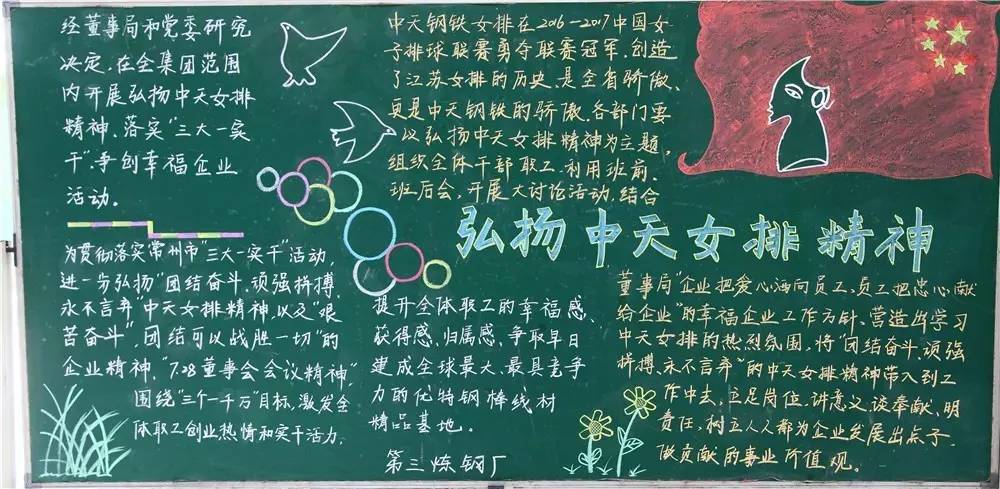 经董事局和党委研究
决定，在全集团范围
内开展弘扬中天女排
精神、落实“三大一实
干”，争创幸福企业
活动。
中天钢铁女排在2016-2017中国女
子排球联赛勇夺联赛冠军，创造
了江苏女排的历史、是全省骄傲、
更是中天钢铁的骄傲。各部门要
以弘扬中天女排精神为主题，
组织全体干部职工、利用班前、
班后会，开展大讨论活动，结合
弘扬中天女排精神
为贯彻落实常州市“三大一实干”活动，
进一步弘扬“团结奋斗、顽强拼搏、
永不言弃”中天女排精神，以及“艰
苦奋斗”，团结可以战胜一切”的
企业精神，“7.28董事会会议精神”，
围绕“三个一千万”目标，激发全
体职工创业热情和实干活力，
提升全体职工的幸福感、
获得感、归属感，争取早日
建成全球最大、最具竞争
力的优特钢棒线材
精品基地。
第三炼钢厂
董事局“企业把爱心洒向员工、员工把忠心献
给企业”的幸福企业工作方针、营造出学习
中天女排的热烈氛围，将“团结奋斗、顽强
拼搏、永不言弃”的中天女排精神带入到工
作中去，立足岗位、讲意义、谈奉献、明
责任，树立人人都为企业发展出点子、
做贡献的事业价值观。